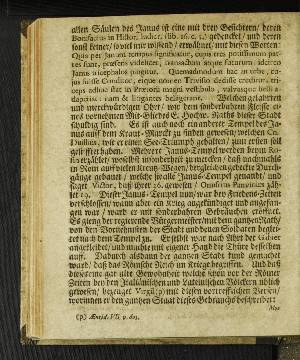 allen Säulen des Janus ist eine mit drey Gesichtern/ deren
Bonifacius in Histor. ludicr. (lib. 16. c. 5.) gedencket/ und deren
sonst keiner/ so viel mir wissend/ erwähnet/ mit diesen Worten:
Quis per Janum tempus significatur, cujus tres potissimum par-
tes sunt, præsens videlicet, transactum atque futurum, idcirco
Janus tricephalos pingitur. Quemadmodum hac in urbe, co-
jus suisse Conditor, eique nomen Trivisio dedisse creditur, tri-
ceps adhuc stat in Prætorii magni vestibulo, valvasque
&
Welchen gelehrten
und merckwürdigen Ort/ wie den sonderbahren Fleisse ei-
nes vornehmen Mit-Gliedes E. Hochw. Raths dieser Stadt
schuldig sind. Es ist auch noch ein ander Tempel des Ja-
nus auf dem Kraut-Marckt zu finden gewesen/ welchen Co.
Duillius, wie er einen See-Triumph gehalten/ zum ersten soll
gestifftet haben. Mehrere Janus-Tempel werden deren Ro-
zu mercken/ daß nachmahls
in Rom auf vielen Kreutz-Wegen/ dergleichen gedeckte Durch-
gänge gebauet/ welche so alle Janus-Tempel genandt/ und
saget Victor, daß ihrer 36. gewesen/ Onufrius Panvinius zäh-
let 19. Dieser Janus-Tempel nun/ war bey Friedens-Zeiten
verschlossen/ wann aber ein Krieg angekündiget und angefan-
gen war/ ward er mit sonderbahren Gebräuchen eröffnet.
Es gieng der regierende Bürgermeister/ mit dem gantzen Rath/
von den Vornehmsten der Stadt und denen Soldaten beglei-
tet nach dem Tempel zu. Er selbst war nach Ahrt der Gabier
angekleidet/ und machte mit eigener Hand die Thüre desselben
auff. Dadurch alsdann der gantzen Stadt kund gemachet
ward/ daß das Römische Reich im Kriege begriffen. Und daß
dieses eine gar alte Gewohnheit welche schon vor der Römer
Zeiten bey den Italiänischen und Lateinischen Völckern üblich
gewesen/ bezeuget Virgil (p) mit diesen vortrefflichen Versen/
worinnen er den gantzen Staat dieses Gebrauchs beschreibet:
(p) Æneid. VII. v. 601.